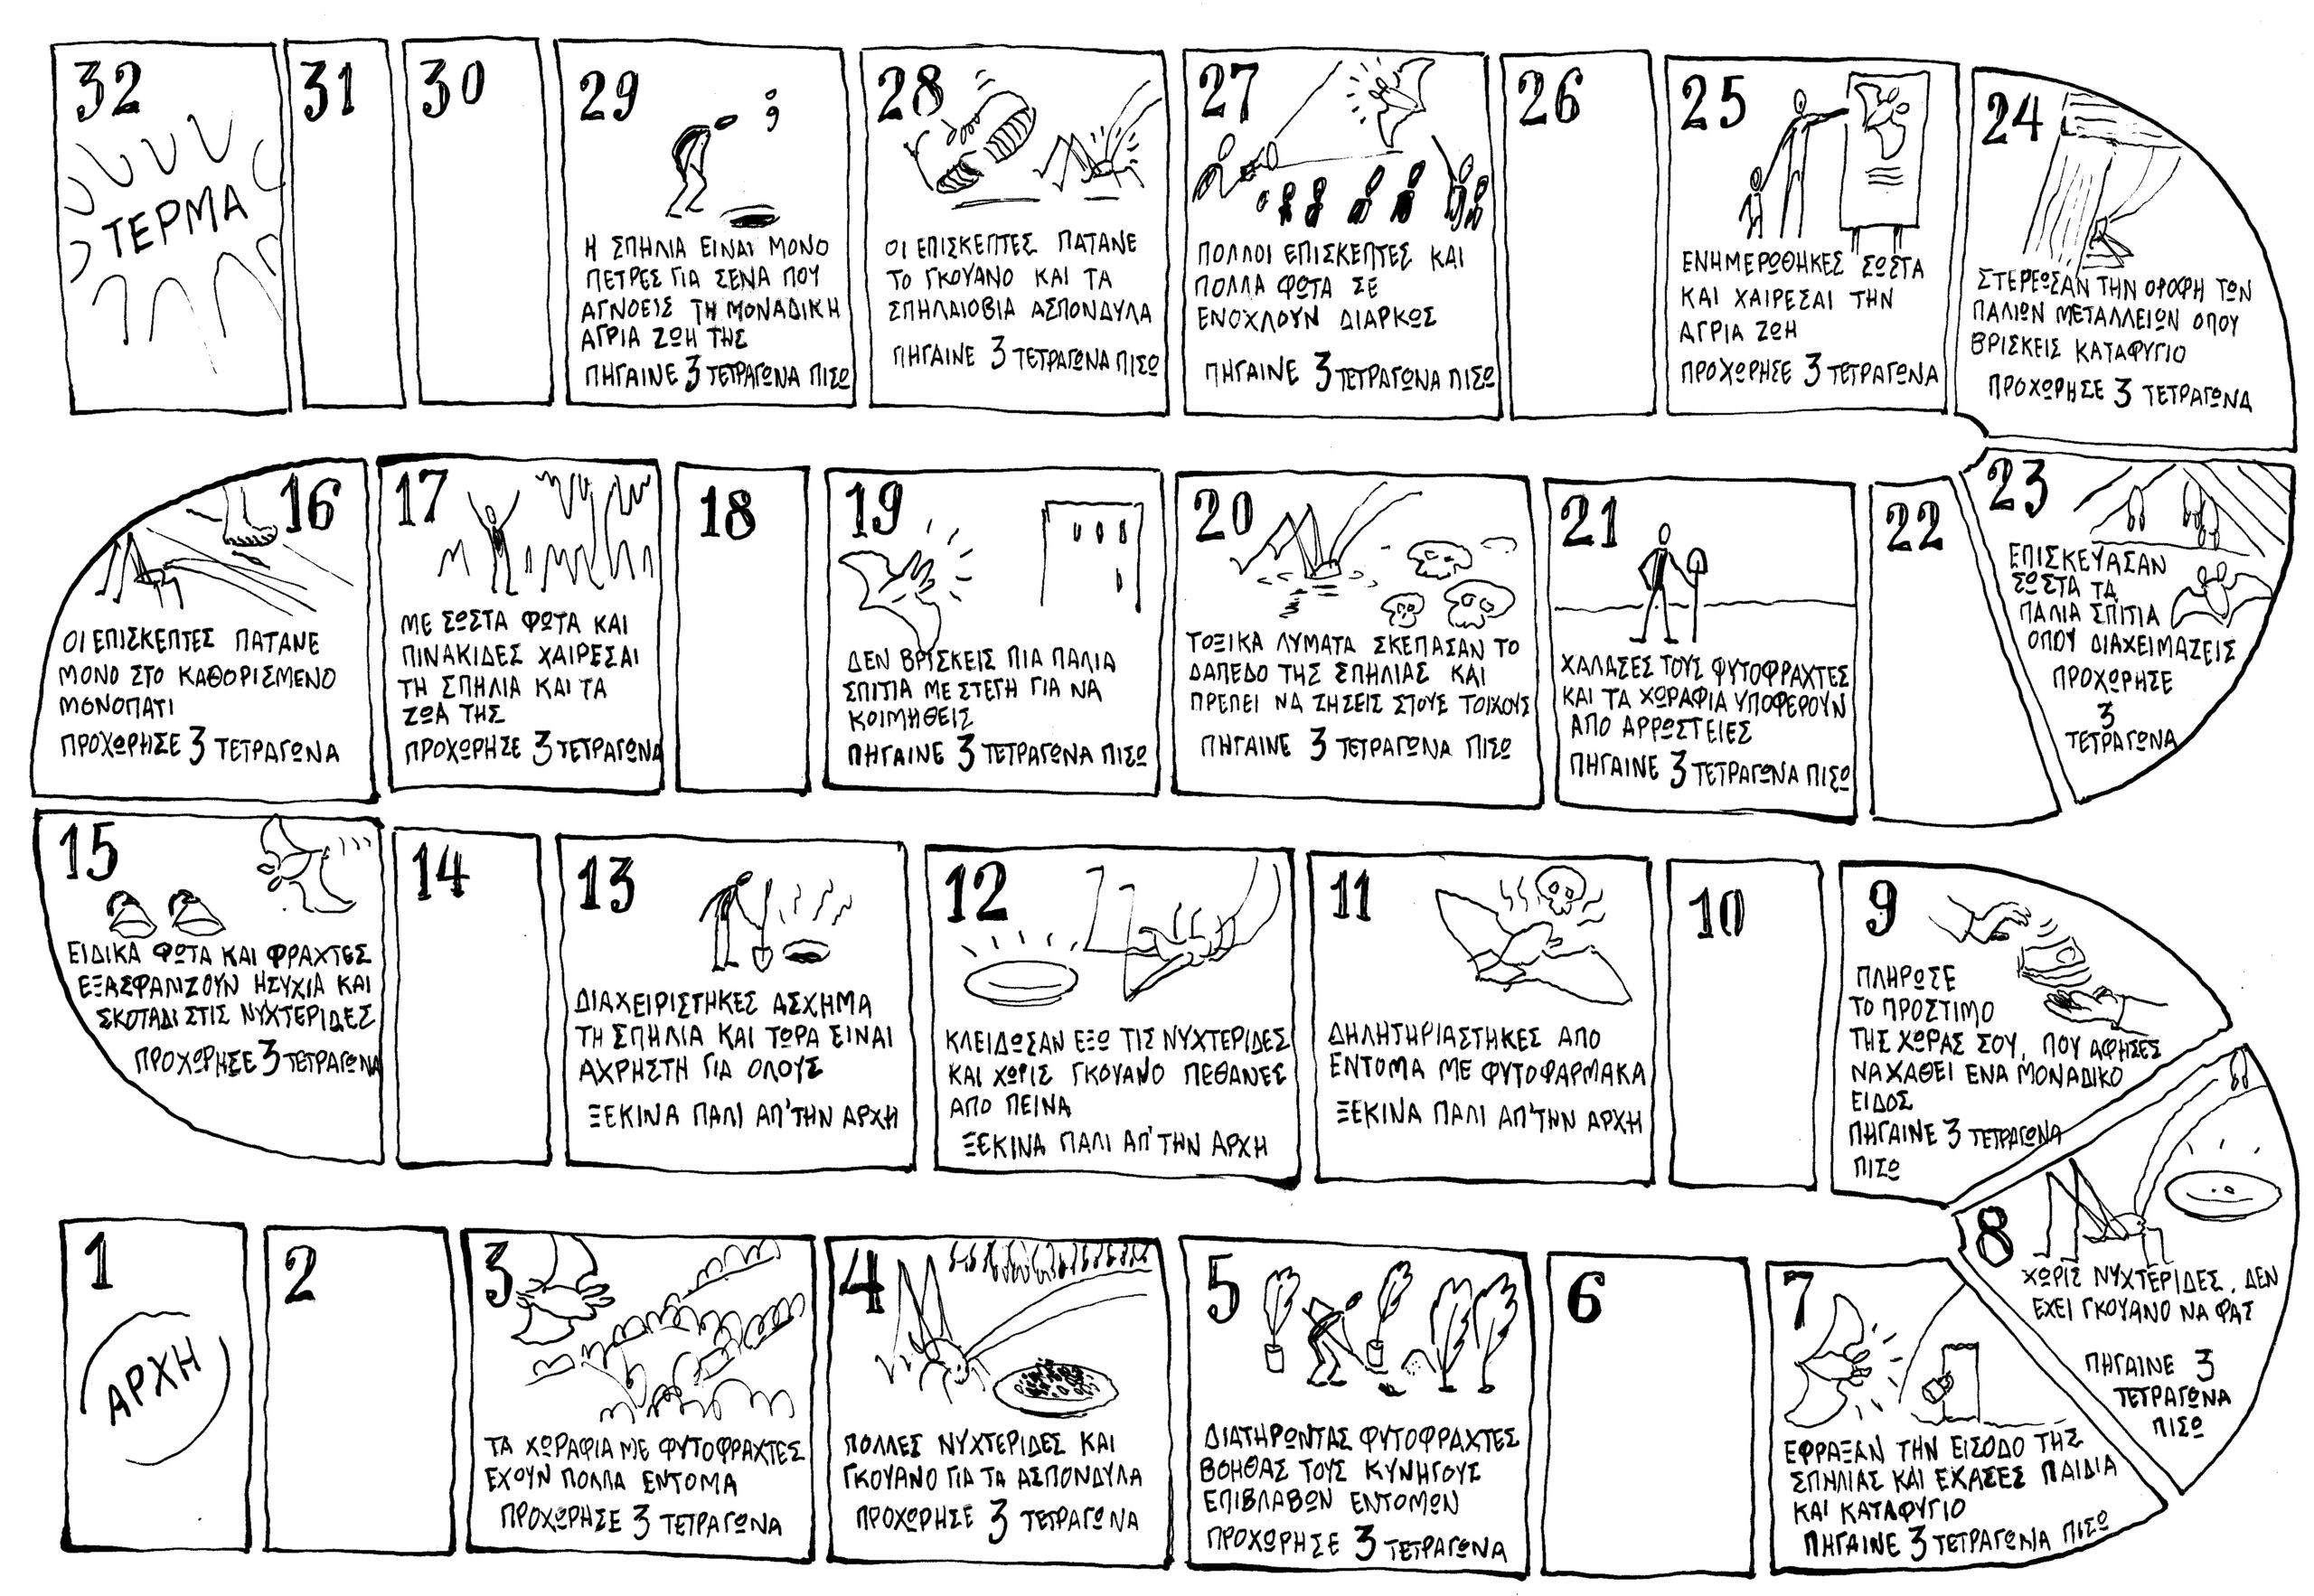 32
ΤΕΡΜΑ
31
30
29
Η ΣΠΗΛΙΑ ΕΙΝΑΙ ΜΟΝΟ
ΠΕΤΡΕΣ ΓΙΑ ΣΕΝΑ ΠΟΥ
ΑΓΝΟΕΙΣ ΤΗ ΜΟΝΑΔΙΚΗ
ΑΓΡΙΑ ΖΩΗ ΤΗΣ
ΠΗΓΑΙΝΕ 3 ΤΕΤΡΑΓΩΝΑ ΠΙΣΩ
28
ΟΙ ΕΠΙΣΚΕΠΤΕΣ ΠΑΤΑΝΕ
ΤΟ ΓΚΟΥΑΝΟ ΚΑΙ ΤΑ
ΣΠΗΛΑΙΟΒΙΑ ΑΣΠΟΝΔΥΛΑ
ΠΗΓΑΙΝΕ 3 ΤΕΤΡΑΓΩΝΑ ΠΙΣΩ
27
ΠΟΛΛΟΙ ΕΠΙΣΚΕΠΤΕΣ ΚΑΙ
ΠΟΛΛΑ ΦΩΤΑ ΣΕ
ΕΝΟΧΛΟΥΝ ΔΙΑΡΚΩΣ
ΠΗΓΑΙΝΕ 3 ΤΕΤΡΑΓΩΝΑ ΠΙΣΩ
26
25
ΕΝΗΜΕΡΩΘΗΚΕΣ ΣΩΣΤΑ
ΚΑΙ ΧΑΙΡΕΣΑΙ ΤΗΝ
ΑΓΡΙΑ ΖΩΗ
ΠΡΟΧΩΡΗΣΕ 3 ΤΕΤΡΑΓΩΝΑ
24
ΣΤΕΡΕΩΣΑΝ ΤΗΝ ΟΡΟΦΗ ΤΩΝ
ΠΑΛΙΩΝ ΜΕΤΑΛΛΕΙΩΝ ΟΠΟΥ
ΒΡΙΣΚΕΙΣ ΚΑΤΑΦΥΓΙΟ
ΠΡΟΧΩΡΗΣΕ 3 ΤΕΤΡΑΓΩΝΑ
16
ΟΙ ΕΠΙΣΚΕΠΤΕΣ ΠΑΤΑΝΕ
ΜΟΝΟ ΣΤΟ ΚΑΘΟΡΙΣΜΕΝΟ
ΜΟΝΟΠΑΤΙ
ΠΡΟΧΩΡΗΣΕ 3 ΤΕΤΡΑΓΩΝΑ
17
ΜΕ ΣΩΣΤΑ ΦΩΤΑ ΚΑΙ
ΠΙΝΑΚΙΔΕΣ ΧΑΙΡΕΣΑΙ
ΤΗ ΣΠΗΛΙΑ ΚΑΙ ΤΑ
ΖΩΑ ΤΗΣ
ΠΡΟΧΩΡΗΣΕ 3 ΤΕΤΡΑΓΩΝΑ
18
19
ΔΕΝ ΒΡΙΣΚΕΙΣ ΠΙΑ ΠΑΛΙΑ
ΣΠΙΤΙΑ ΜΕ ΣΤΕΓΗ ΓΙΑ ΝΑ
ΚΟΙΜΗΘΕΙΣ
ΠΗΓΑΙΝΕ 3 ΤΕΤΡΑΓΩΝΑ ΠΙΣΩ
20
ΤΟΞΙΚΑ ΛΥΜΑΤΑ ΣΚΕΠΑΣΑΝ ΤΟ
ΔΑΠΕΔΟ ΤΗΣ ΣΠΗΛΙΑΣ ΚΑΙ
ΠΡΕΠΕΙ ΝΑ ΖΗΣΕΙΣ ΣΤΟΥΣ ΤΟΙΧΟΥΣ
ΠΗΓΑΙΝΕ 3 ΤΕΤΡΑΓΩΝΑ ΠΙΣΩ
21
ΧΑΛΑΣΕΣ ΤΟΥΣ ΦΥΤΟΦΡΑΧΤΕΣ
ΚΑΙ ΤΑ ΧΩΡΑΦΙΑ ΥΠΟΦΕΡΟΥΝ
ΑΠΟ ΑΡΡΩΣΤΕΙΕΣ
ΠΗΓΑΙΝΕ 3 ΤΕΤΡΑΓΩΝΑ ΠΙΣΩ
22
23
ΕΠΙΣΚΕΥΑΣΑΝ
ΣΩΣΤΑ ΤΑ
ΠΑΛΙΑ ΣΠΙΤΙΑ
ΟΠΟΥ ΔΙΑΧΕΙΜΑΖΕΙΣ
ΠΡΟΧΩΡΗΣΕ
3
ΤΕΤΡΑΓΩΝΑ
15
ΕΙΔΙΚΑ ΦΩΤΑ ΚΑΙ ΦΡΑΧΤΕΣ
ΕΞΑΣΦΑΛΙΖΟΥΝ ΗΣΥΧΙΑ ΚΑΙ
ΣΚΟΤΑΔΙ ΣΤΙΣ ΝΥΧΤΕΡΙΔΕΣ
ΠΡΟΧΩΡΗΣΕ 3 ΤΕΤΡΑΓΩΝΑ
14
13
ΔΙΑΧΕΙΡΙΣΤΗΚΕΣ ΑΣΧΗΜΑ
ΤΗ ΣΠΗΛΙΑ ΚΑΙ ΤΩΡΑ ΕΙΝΑΙ
ΑΧΡΗΣΤΗ ΓΙΑ ΟΛΟΥΣ
ΞΕΚΙΝΑ ΠΑΛΙ ΑΠ'ΤΗΝ ΑΡΧΗ
12
ΚΛΕΙΔΩΣΑΝ ΕΞΩ ΤΙΣ ΝΥΧΤΕΡΙΔΕΣ
ΚΑΙ ΧΩΡΙΣ ΓΚΟΥΑΝΟ ΠΕΘΑΝΕΣ
ΑΠΟ ΠΕΙΝΑ
ΞΕΚΙΝΑ ΠΑΛΙ ΑΠ'ΤΗΝ ΑΡΧΗ
11
ΔΗΛΗΤΗΡΙΑΣΤΗΚΕΣ ΑΠΟ
ΕΝΤΟΜΑ ΜΕ ΦΥΤΟΦΑΡΜΑΚΑ
ΞΕΚΙΝΑ ΠΑΛΙ ΑΠ'ΤΗΝ ΑΡΧΗ
10
9
ΠΛΗΡΩΣΕ
ΤΟ ΠΡΟΣΤΙΜΟ
ΤΗΣ ΧΩΡΑΣ ΣΟΥ, ΠΟΥ ΑΦΗΣΕΣ
ΝΑ ΧΑΘΕΙ ΕΝΑ ΜΟΝΑΔΙΚΟ
ΕΙΔΟΣ
ΠΗΓΑΙΝΕ 3 ΤΕΤΡΑΓΩΝΑ
ΠΙΣΩ
1
ΑΡΧΗ
2
3
ΤΑ ΧΩΡΑΦΙΑ ΜΕ ΦΥΤΟΦΡΑΧΤΕΣ
ΕΧΟΥΝ ΠΟΛΛΑ ΕΝΤΟΜΑ
ΠΡΟΧΩΡΗΣΕ 3 ΤΕΤΡΑΓΩΝΑ
4
ΠΟΛΛΕΣ ΝΥΧΤΕΡΙΔΕΣ ΚΑΙ
ΓΚΟΥΑΝΟ ΓΙΑ ΤΑ ΑΣΠΟΝΔΥΛΑ
ΠΡΟΧΩΡΗΣΕ 3 ΤΕΤΡΑΓΩΝΑ
5
ΔΙΑΤΗΡΩΝΤΑΣ ΦΥΤΟΦΡΑΧΤΕΣ
ΒΟΗΘΑΣ ΤΟΥΣ ΚΥΝΗΓΟΥΣ
ΕΠΙΒΛΑΒΩΝ ΕΝΤΟΜΩΝ
ΠΡΟΧΩΡΗΣΕ 3 ΤΕΤΡΑΓΩΝΑ
6
7
ΕΦΡΑΞΑΝ ΤΗΝ ΕΙΣΟΔΟ ΤΗΣ
ΣΠΗΛΙΑΣ ΚΑΙ ΕΧΑΣΕΣ ΠΑΙΔΙΑ
ΚΑΙ ΚΑΤΑΦΥΓΙΟ
ΠΗΓΑΙΝΕ 3 ΤΕΤΡΑΓΩΝΑ ΠΙΣΩ
8
ΧΩΡΙΣ ΝΥΧΤΕΡΙΔΕΣ, ΔΕΝ
ΕΧΕΙ ΓΚΟΥΑΝΟ ΝΑ ΦΑΣ
ΠΗΓΑΙΝΕ 3
ΤΕΤΡΑΓΩΝΑ
ΠΙΣΩ